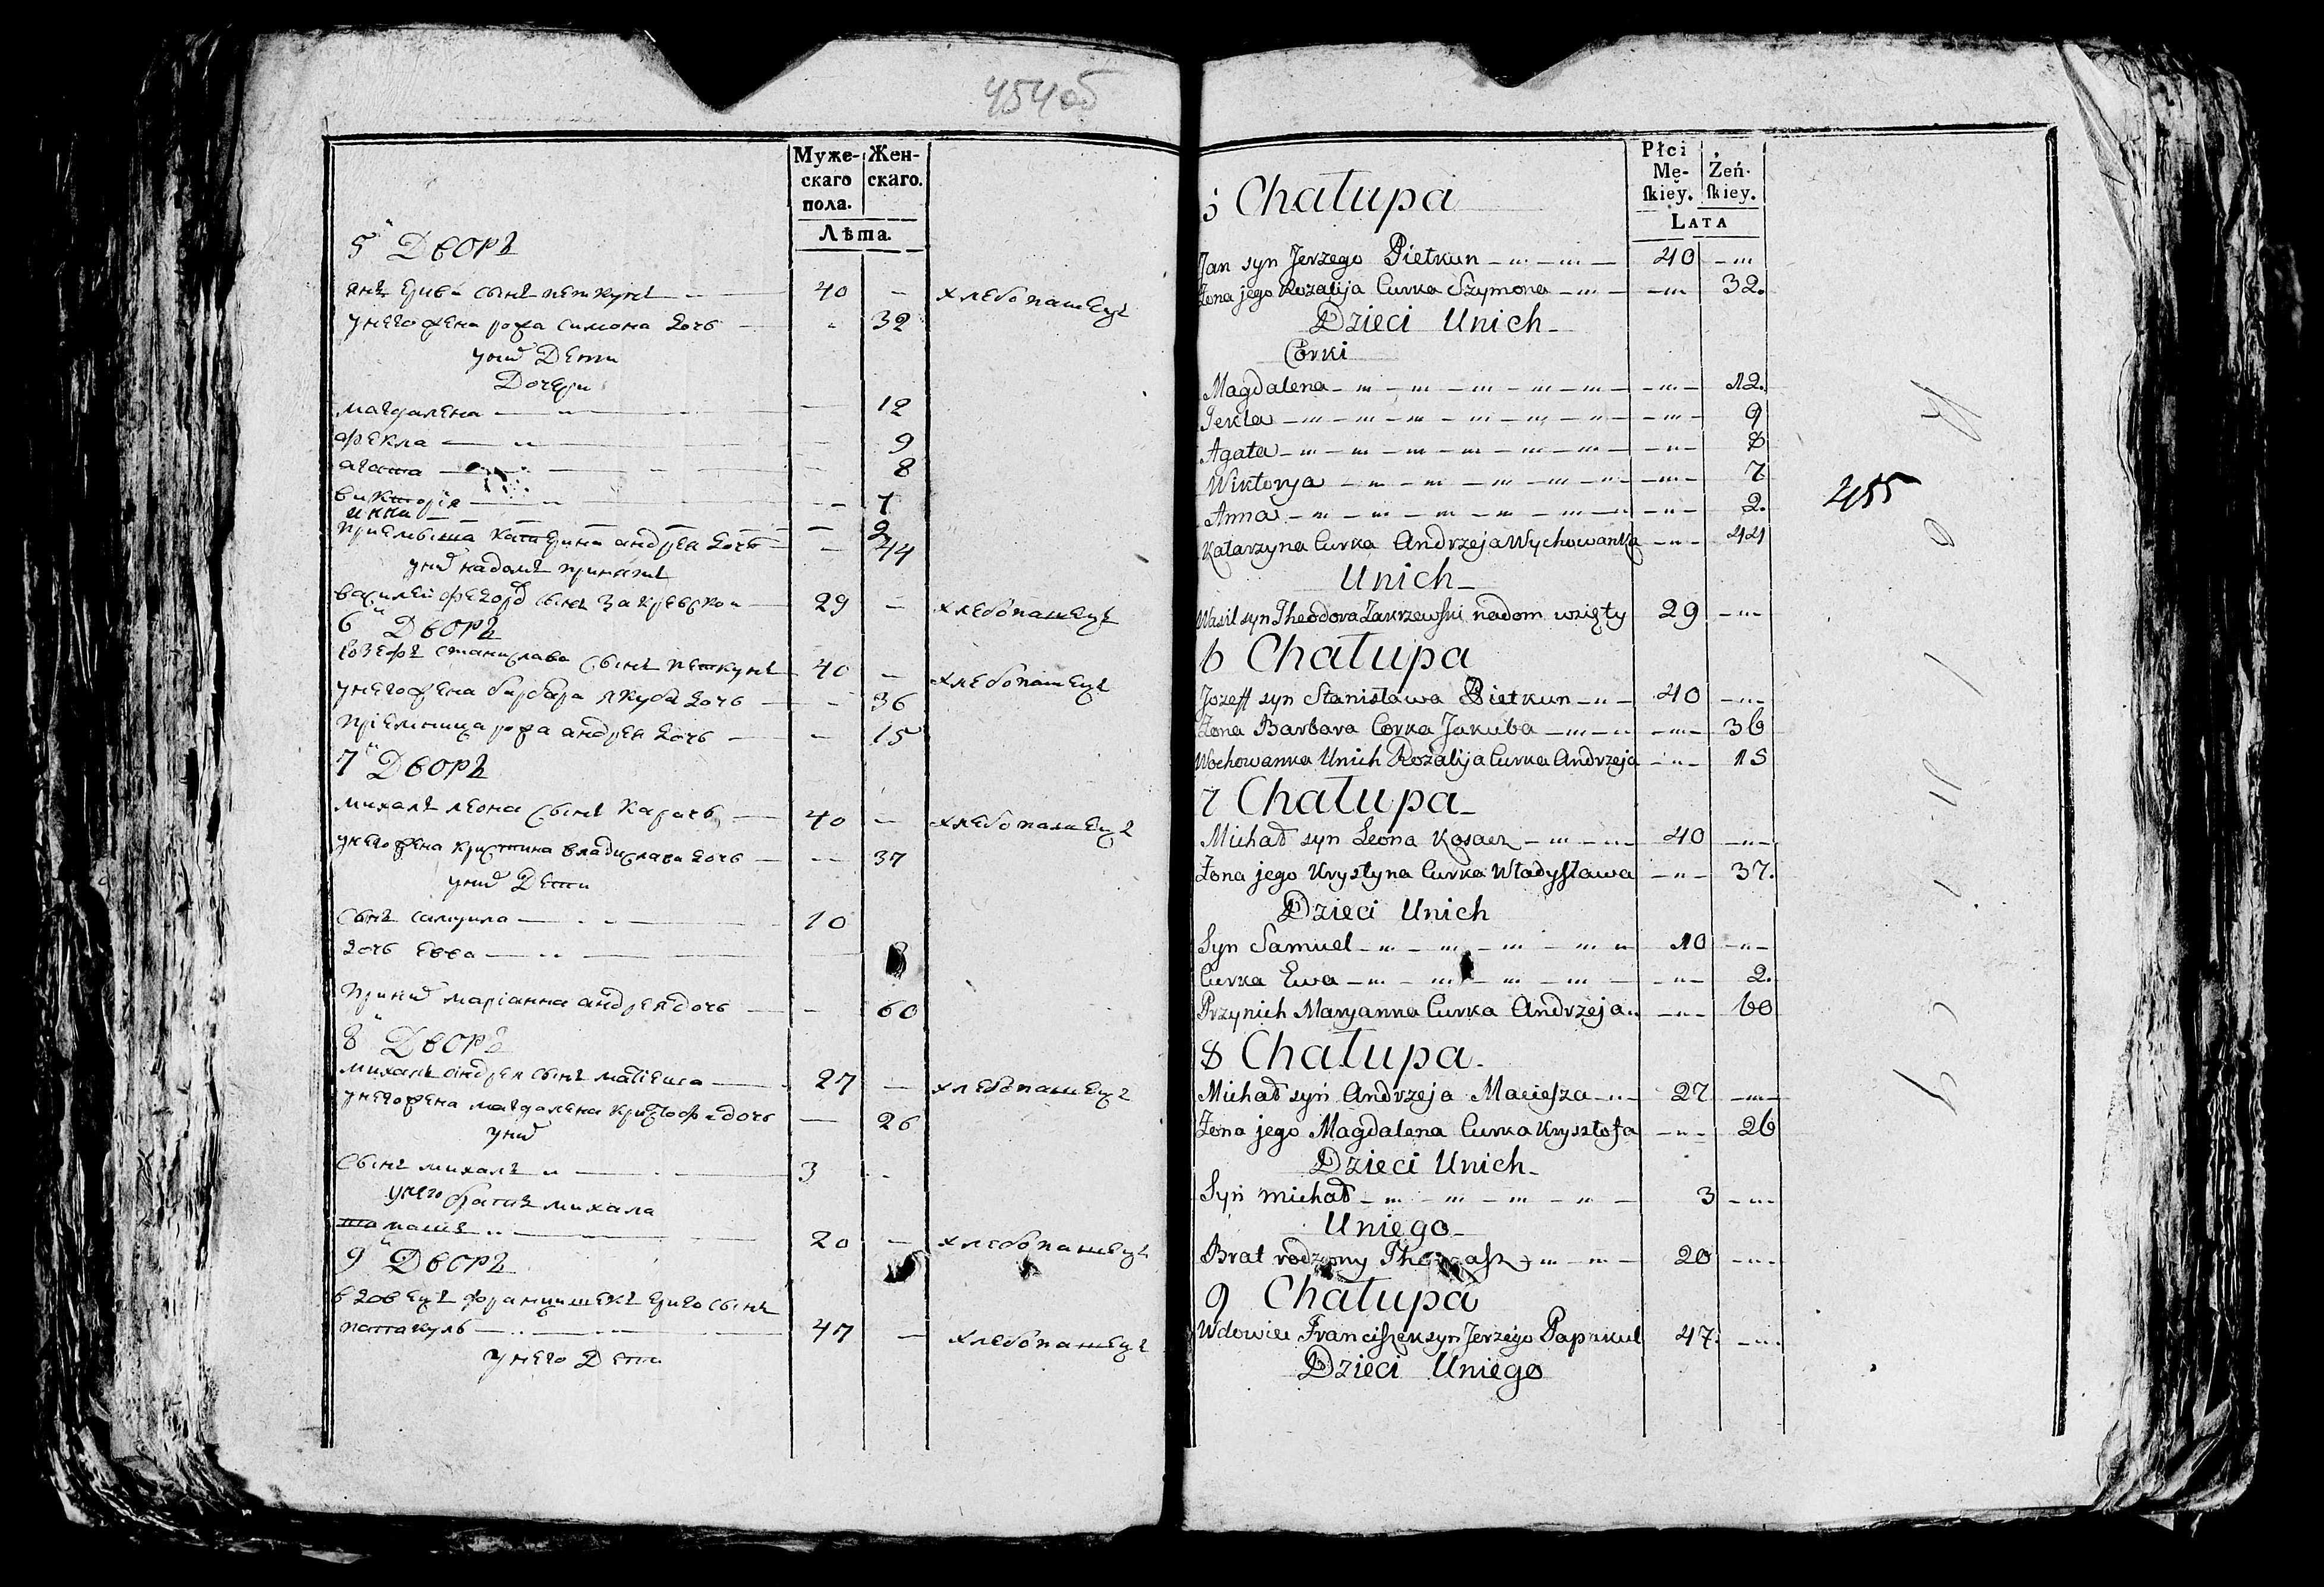 454об
Муже-
скаго
пола.
Жен-
скаго.
Лѣта.
5й Дворъ
янъ Ериго сынъ петкунъ 40 — хлебопашецъ
унего жена рожа симона дочь 32
уних Дети
Дочери
магдалена — 12
фекла — 9
агата — 8
викторія — 7
анна — 2
приемыша катерина андрея дочь — 44
уних надомъ принятъ
василей федора сынъ закревски 29 — хлебопашецъ
6й Дворъ
Іозефъ станислава сынъ петкунъ 40 — хлебопашецъ
унего жена барбара якуба дочь — 36
пріемница рожа андрея дочь — 15
7й Дворъ
михалъ леона сынъ 40 — хлебопашецъ
унего жена кристина владислава дочь — 37
уних Дети
сынъ самуила 10
дочь евва —
приних маріанна андрея дочь — 60
8й Дворъ
михалъ андрея сынъ матіеша 27 — хлебопашецъ
унего жена магдалена криштофа дочь — 26
уних
сынъ михалъ 3
унего братъ михала
томашъ 20 — хлебопашецъ
9й Дворъ
вдовецъ францишекъ Ериго сынъ
папакуль 47 — хлебопашецъ
унего Дети
Płci
Mę-
ſkiey.
Żeń-
ſkiey.
LATA
5 Chałupa
Jan syn Jerzego Pietkun 40
Żona jego Rozalija Curka Szymona 32.
Dzieci Unich
Córki
Magdalena 12.
Tekla 9
Agata 8
Wiktorya 7
Anna 2.
Katarzyna Curka Andrzeja Wychowanka 44
Unich
Wasil syn Theodora Zakrzewſki nadom wzięty 29
6 Chałupa
Jozeff syn Stanisława Pietkun 40
Żona Barbara Corka Jakuba 36
Wochowanka Unich Rozalija Curka Andrzeja 15
7 Chałupa
Michał syn Leona Kosacz 40
Żona jego Krystyna Curka Władyſława 37.
Dzieci Unich
Syn Samuel 10
Curka Ewa 2.
Przynich Maryanna Curka Andrzeja 60
8 Chałupa
Michał syn Andrzeja Macieſza 27
Żona jego Magdalena Curka Krysztofa 26
Dzieci Unich
Syn michał 3
Uniego
Brat rodzony Thomaſz 20
9 Chałupa
Wdowiec Franciſzek syn Jerzego Papakul 47.
Dzieci Uniego
455